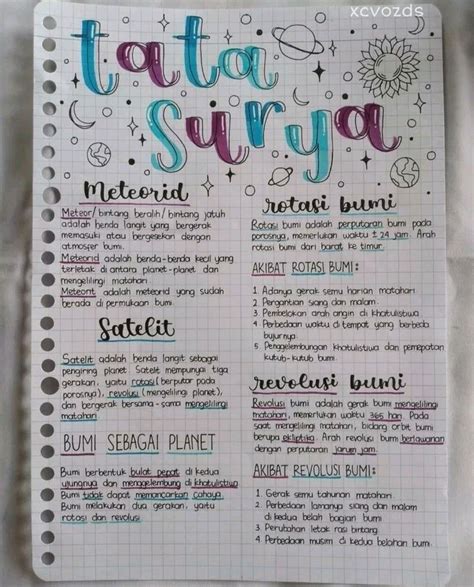 xcvozds
tata
surya
Meteorid
Meteor/bintang beralih/bintang jatuh
adalah benda langit yang bergerak
memasuki atau bergesekan dengan
atmosfer bumi.
Meteorid adalah benda-benda kecil yang
terletak di antara planet-planet dan
mengelilingi matahari
Meteorit adalah meteorid yang sudah
berada di permukaan bumi.
Satelit
Satelit adalah benda langit sebagai
pengiring planet. Satelit mempunyai tiga
gerakan, yaitu rotasi (berputar pada
porosnya), revolusi (mengelilingi planet),
dan bergerak bersama-sama mengelilingi
matahari
BUMI SEBAGAI PLANET
Bumi berbentuk bulat pepat di kedua
ujungnya dan menggelembung di khatulistiwa
Bumi tidak dapat memancarkan cahaya.
Bumi melakukan dua gerakan, yaitu
rotasi dan revolusi.
rotasi bumi
Rotasi bumi adalah perputaran bumi pada
porosnya, memerlukan waktu ± 24 jam. Arah
rotasi bumi dari barat ke timur.
AKIBAT ROTASI BUMI:
1. Adanya gerak semu harian matahari
2. Pergantian siang dan malam.
3. Pembelokan arah angin di khatulistiwa
4. Perbedaan waktu di tempat yang berbeda
bujurnya.
5. Penggelembungan khatulistiwa dan pemepatan
kutub-kutub bumi.
revolusi bumi
Revolusi bumi adalah gerak bumi mengelilingi
matahari, memerlukan waktu 365 hari. Pada
saat mengelilingi matahari, bidang orbit bumi
berupa ekliptika. Arah revolusi bumi berlawanan
dengan perputaran jarum jam.
AKIBAT REVOLUSI BUMI:
1. Gerak semu tahunan matahari
2. Perbedaan lamanya siang dan malam
di kedua belah bagian bumi
3. Perubahan letak rasi bintang
4. Perbedaan musim di kedua belahan bumi.